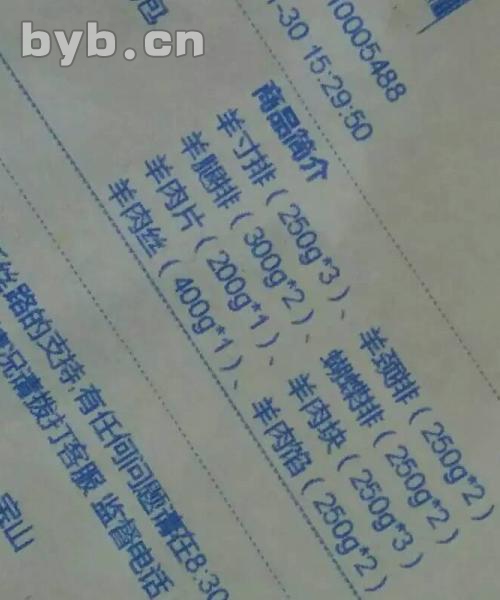 byb.cn
包
10005488
1-30 15:29:50
商品简介
羊寸排(250g*3)、羊颈排(250g*2)
羊腿排(300g*2)、蝴蝶排(250g*2)
羊肉片(200g*1)、羊肉块(250g*3)
羊肉丝(400g*1)、羊肉馅(250g*2)
丝路的支持,有任何问题请在8:30
情况请拨打客服 监督电话
宝山